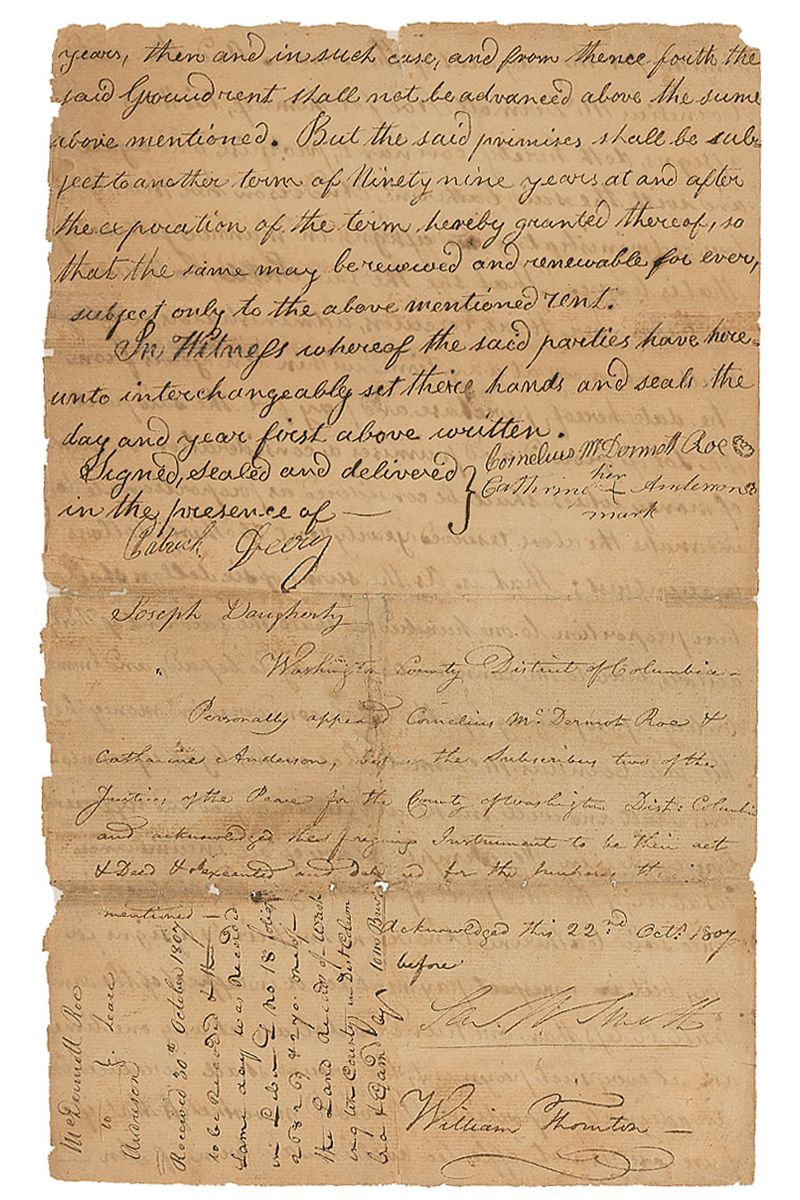 years, then and in such case, and from thence forth the
said Ground rent shall not be advanced above the sume
above mentioned. But the said premises shall be sub-
ject to another term of Ninety nine years at and after
the expiration of the term hereby granted thereof, so
that the same may be renewed and renewable for ever,
subject only to the above mentioned rent.
In Witness whereof the said parties have here-
unto interchangeably set there hands and seals the
day and year first above written.
Signed, sealed and delivered
in the presence of —
Cornelius McDermott Roe
her
Cathrine Anderson
mark
Patrick Deery
Joseph Daugherty
Washington County District of Columbia
Personally appeared Cornelius Mc Dermot Roe &
Catharine Anderson, the Subscribers two of the
Justices of the Peace for the County of Washington Dist: Columbia
and acknowledged the foregoing Instrument to be their act
& Deed & executed and for the purposes
mentioned —
Acknowledged this 22nd Octr. 1807
before
Smith
William Thornton —
McDermott Roe
to Lease
Anderson
Received 30th October 1807
to be Recorded & the
Same day was Recorded
in Liber no 18 folios
268 269 & 270 one of
the Land Records of Wash
ington County in Dist Colum
bia & Exam'd by Wm